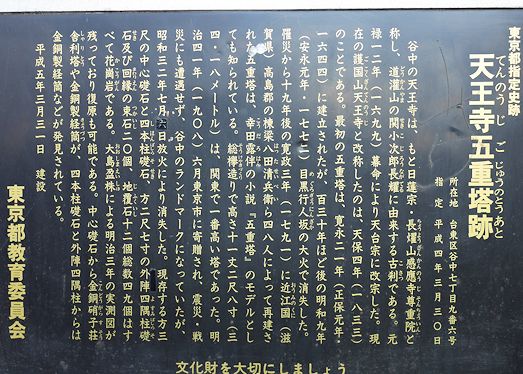 東京都指定史跡
天王寺五重塔跡
てんのうじごじゅうのとうあと
所在地 台東区谷中七丁目九番六号
指定 平成四年三月三〇日
谷中の天王寺は、もと日蓮宗・長耀山感應寺尊重院と
称し、道灌山の関小次郎長耀に由来する古刹である。元
禄一二年(一六九九)幕命により天台宗に改宗した。現
在の護国山天王寺と改称したのは、天保四年(一八三三)
のことである。最初の五重塔は、寛永二一年(正保元年・
一六四四)に建立されたが、百三十年ほど後の明和九年
(安永元年・一七七二)目黒行人坂の大火で消失した。
罹災から十九年後の寛政三年(一七九一)に近江国(滋
賀県)高島郡の棟梁八田清兵衛ら四八人によって再建さ
れた五重塔は、幸田露伴の小説『五重塔』のモデルとし
ても知られている。総欅造りで高さ十一丈二尺八寸(三
四・一八メートル)は、関東で一番高い塔であった。明
治四一年(一九〇八)六月東京市に寄贈され、震災・戦
災にも遭遇せず、谷中のランドマークになっていたが、
昭和三二年七月六日放火により消失した。現存する方三
尺の中心礎石と四本柱礎石、方二尺七寸の外陣四隅柱礎
石及び回縁の束石二〇個、地覆石十二個総数四九個はす
べて花崗岩である。大島盈株による明治三年の実測図が
残っており復原も可能である。中心礎石から金銅硝子荘
舎利塔や金銅製経筒が、四本柱礎石と外陣四隅柱からは
金銅製経筒などが発見されている。
平成五年三月三一日 建設
東京都教育委員会
文化財を大切にしましょう